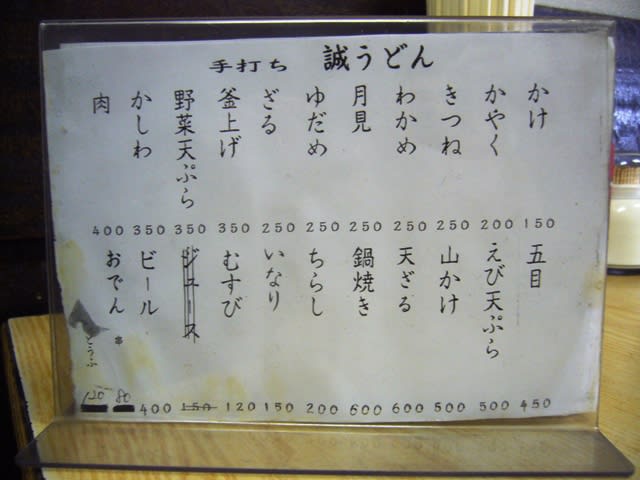 手打ち 誠うどん
かけ 150
かやく 200
きつね 250
わかめ 250
月見 250
ゆだめ 250
ざる 250
釜上げ 350
野菜天ぷら 350
かしわ 350
肉 400
五目 450
えび天ぷら 500
山かけ 500
天ざる 600
鍋焼き 600
ちらし 200
いなり 150
むすび 120
ジュース 150
ビール 400
おでん 串 80
とうふ 120